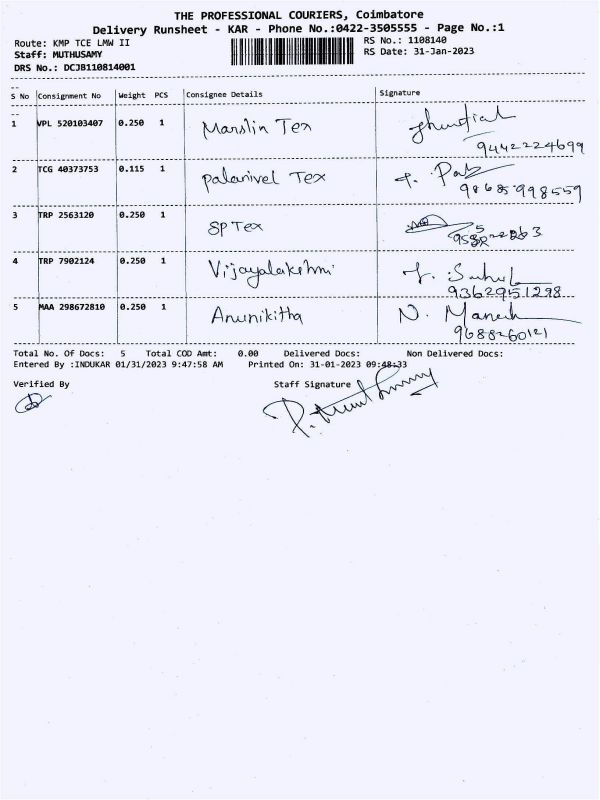 THE PROFESSIONAL COURIERS, Coimbatore
Delivery Runsheet - KAR - Phone No.:0422-3505555 - Page No.:1
Route: KMP TCE LMW II RS No.: 1108140
Staff: MUTHUSAMY RS Date: 31-Jan-2023
DRS No.: DCJB110814001
S No Consignment No Weight PCS Consignee Details Signature
1 VPL 520103407 0.250 1 Marslin Tex
9442224699
2 TCG 40373753 0.115 1 Palanivel Tex
98685998559
3 TRP 2563120 0.250 1 SP Tex
4 TRP 7902124 0.250 1 Vijayalakshmi
9362951298
5 MAA 298672810 0.250 1 Arunikitha N.
9688260121
Total No. Of Docs: 5 Total COD Amt: 0.00 Delivered Docs: Non Delivered Docs:
Entered By :INDUKAR 01/31/2023 9:47:58 AM Printed On: 31-01-2023 09:48:33
Verified By Staff Signature